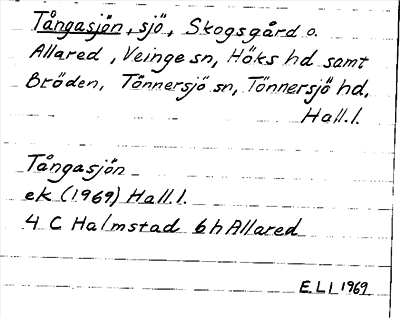 Tångasjön, sjö, Skogsgård o.
Allared, Veinge sn, Höks hd samt
Bröden, Tönnersjö sn, Tönnersjö hd,
Hall. l.
Tångasjön
ek (1969) Hall. l.
4 C Halmstad 6 h Allared
E. L l 1969